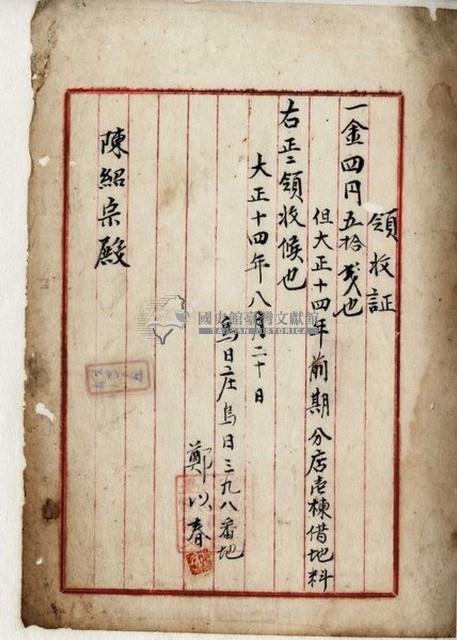 領收証
一金四円五拾戔也
但大正十四年前期分店壱棟借地料
右正ニ領收候也
大正十四年八月二十日
烏日庄烏日三九八番地
鄭以春
陳紹宗殿
國史館臺灣文獻館
TAIWAN HISTORICA